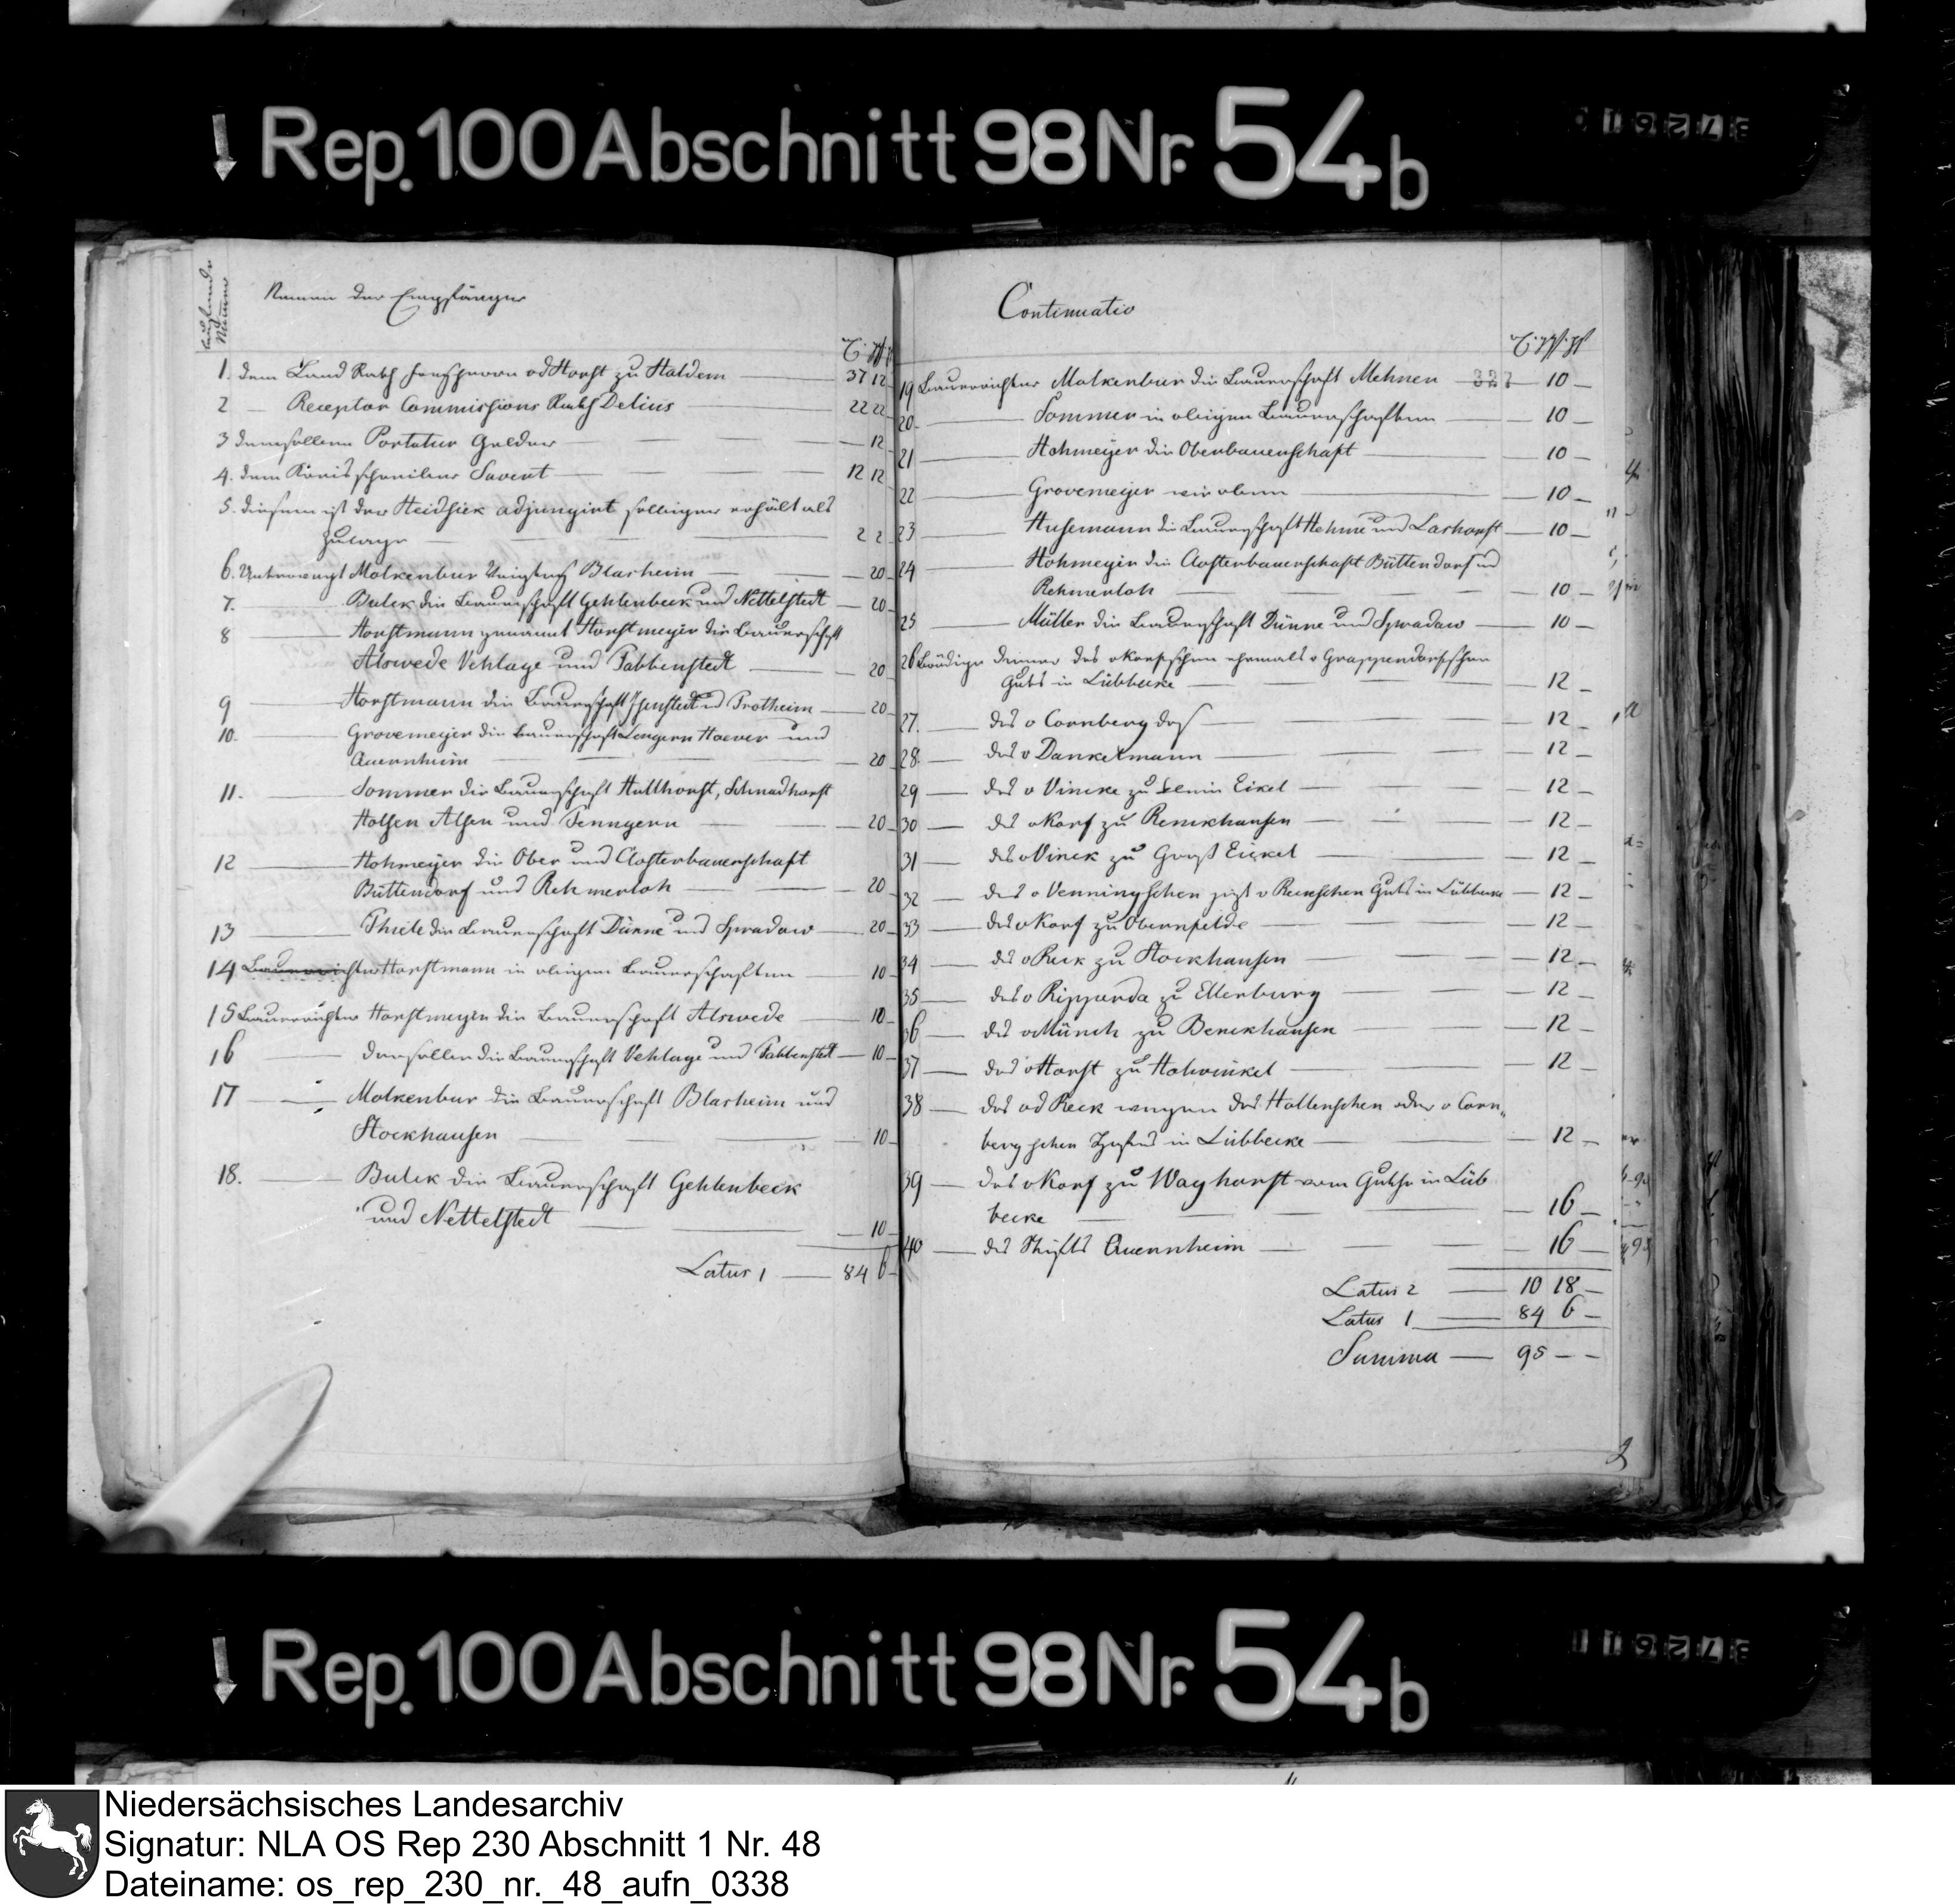 Rep. 100 Abschnitt 98 Nr. 54 b
laufende Numero
Namen der Empfänger
1. dem Land Rath Freyherrn v d Horst zu Haldem 37 12
2 — Receptor Commissions Rath Delius 22 22
3 demselben Portatur Gelder — 12
4. dem Kreisschreiber Savent 12 12
5. diesem ist der Heidsiek adjungirt selbiger erhält als
Zulage 2 2
6. Untervoigt Molkenbur Voigtey Blasheim — 20
7. Bulek die Bauerschaft Gehlenbeck und Nettelstedt — 20
8 Horstmann genannt Horstmeyer die Bauerschaft
Alswede Vehlage und Fabbenstedt — 20
9 Horstmann die Bauerschaft Isenstedt und Frotheim — 20
10. Grovemeyer die Bauerschaft Lengern Haever und
Quernheim — 20
11. Sommer die Bauerschaft Hüllhorst, Schnadhorst
Holsen Ahlsen und Tenngern — 20
12 Hohmeyer die Ober und Closterbauerschaft
Büttendorf und Rehmerloh — 20
13 Thiele die Bauerschaft Dünne und Spradow — 20
14 Bauerrichter Horstmann in obigen Bauerschaften — 10
15 Bauerrichter Horstmeyer die Bauerschaft Alswede — 10
16 derselbe die Bauerschaft Vehlage und Fabbenstedt — 10
17 Molkenbur die Bauerschaft Blasheim und
Stockhausen — 10
18. Bulek die Bauerschaft Gehlenbeck
und Nettelstedt — 10
Latus 1 — 84 6 —
Continuatio
19 Bauerrichter Molkenbur die Bauerschaft Mehnen — 10 —
20. Sommer in obigen Bauerschaften — 10 —
21 Hohmeyer die Oberbauerschaft — 10 —
22 Grovemeyer wie oben — 10 —
23 Husemann die Bauerschaft Hehme und Lashorst — 10 —
24 Hohmeyer die Closterbauerschaft Büttendorf und
Rehmerloh — 10 —
25 Müller die Bauerschaft Dünne und Spradow — 10 —
26 Diener des v Korfschen ehemals v Grappendorfschen
Guts in Lübbecke — 12 —
27. des v Cornberg das — 12 —
28. des v Dankelmann — 12 —
29 — des v Vincke zu Eikel — 12 —
30 — des v Korf zu Renkhausen — 12 —
31 — des v Vinck zu Groß Eickel — 12 —
32 — des v Venningschen jetzt v Reckschen Guts in Lübbecke — 12 —
33 — des v Korf zu Obernfelde — 12 —
34 — des v Reck zu Stockhausen — 12 —
35 — des v Ripperda zu Ellerburg — 12 —
36 — des v Münch zu Benckhausen — 12 —
37 — des v Horst zu Hollwinkel — 12 —
38 — des v d Reck wegen des Hollenschen oder v Corn
bergschen Hofes in Lübbecke — 12 —
39 — des v Korf zu Waghorst vom Guthe in Lüb
becke — 16 —
40 — des Stifts Quernheim — 16 —
Latus 2 — 10 18 —
Latus 1 — 84 6 —
Summa — 95 — —
Rep. 100 Abschnitt 98 Nr. 54 b
Niedersächsisches Landesarchiv
Signatur: NLA OS Rep 230 Abschnitt 1 Nr. 48
Dateiname: os_rep_230_nr._48_aufn_0338